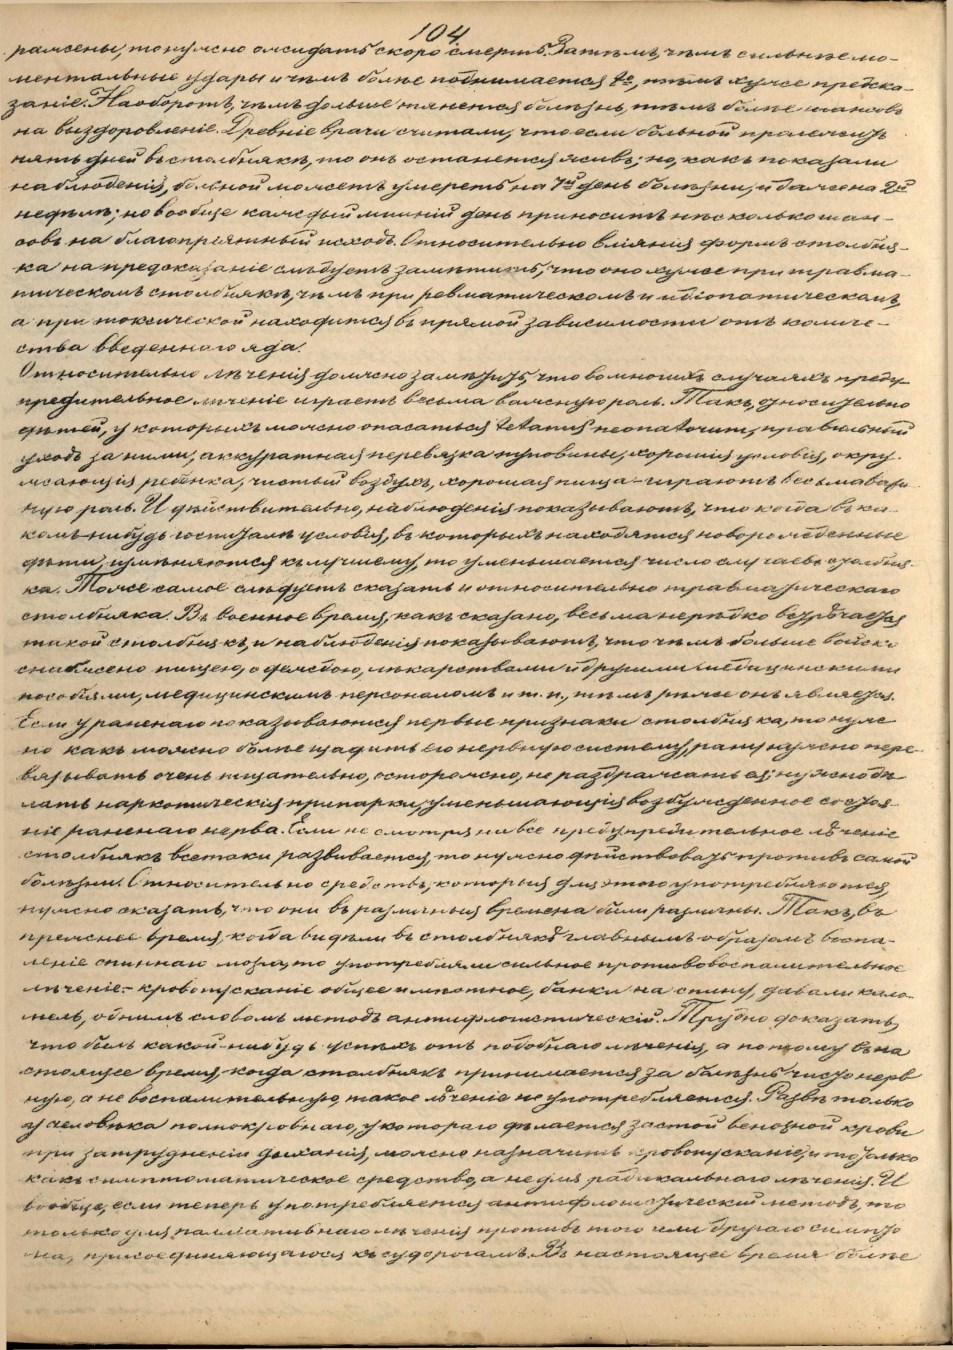 104
ражены, то нужно ожидать скоро смерть. Затѣмъ, чѣмъ сильнѣе мо-
ментальные удары и чѣмъ болѣе поднимается t°, тѣмъ хуже предска-
заніе. Наоборотъ, чѣмъ дольше тянется болѣзнь, тѣмъ болѣе шансовъ
на выздоровленіе. Древніе врачи считали, что если больной пролежитъ
пять дней въ столбнякѣ, то онъ останется живъ; но, какъ показали
наблюденія, больной можетъ умереть на 7й день болѣзни, и даже на 2й
недѣлѣ; но вообще каждый лишній день приноситъ нѣсколько шан-
совъ на благопріятный исходъ. Относительно вліянія формъ столбня-
ка на предсказаніе слѣдуетъ замѣтить, что оно хуже при травма-
тическомъ столбнякѣ, чѣмъ при ревматическомъ и идіопатическомъ,
а при токсической находится въ прямой зависимости отъ количе-
ства введеннаго яда.
Относительно лѣченія должно замѣтить, что во многихъ случаяхъ преду-
предительное лѣченіе играетъ весьма важную роль. Такъ, относительно
дѣтей, у которыхъ можно опасаться tetanus neonatorum, правильный
уходъ за ними, аккуратная перевязка пуповины, хорошія условія, окру-
жающія ребенка, чистый воздухъ, хорошая пища - играютъ весьма важ-
ную роль. И дѣйствительно, наблюденія показываютъ, что когда въ ка-
комъ-нибудь госпиталѣ условія, въ которыхъ находятся новорожденные
дѣти, измѣняются къ лучшему, то уменьшается число случаевъ столбня-
ка. Тоже самое слѣдуетъ сказать и относительно травматическаго
столбняка. Въ военное время, какъ сказано, весьма нерѣдко встрѣчается
такой столбнякъ, и наблюденія показываютъ, что чѣмъ больше войско
снабжено пищею, одеждою, лѣкарствами и другими медицинскими
пособіями, медицинскимъ персоналомъ и т. п., тѣмъ рѣже онъ является.
Если у раненаго показываются первые признаки столбняка, то нуж-
но какъ можно болѣе щадить его нервную систему, рану нужно пере-
вязывать очень тщательно, осторожно, не раздражать ея; нужно дѣ-
лать наркотическія припарки, уменьшающія возбужденное состоя-
ніе раненаго нерва. Если не смотря на все предупредительное лѣченіе
столбнякъ всетаки развивается, то нужно дѣйствовать противъ самой
болѣзни. Относительно средствъ, которыя для этого употребляются,
нужно сказать, что они въ различныя времена были различны. Такъ, въ
прежнее время, когда видѣли въ столбнякѣ главнымъ образомъ воспа-
леніе спиннаго мозга, то употребляли сильное противовоспалительное
лѣченіе - кровопусканіе общее и мѣстное, банки на спину, давали кало-
мель, однимъ словомъ методъ антифлогистическій. Трудно доказать,
что былъ какой-нибудь успѣхъ отъ подобнаго лѣченія, а потому въ на
стоящее время, когда столбнякъ принимается за болѣзнь чисто нерв
ную, а не воспалительную, такое лѣченіе не употребляется. Развѣ только
у человѣка полнокровнаго, у котораго дѣлается застой венозной крови
при затрудненіи дыханія, можно назначить кровопусканіе, и то только
какъ симптоматическое средство, а не для радикальнаго лѣченія. И
вообще, если теперь употребляется антифлогистическій методъ, то
только для палліативнаго лѣченія противъ того или другаго симпто
ма, присоединяющагося къ судорогамъ. Въ настоящее время болѣе